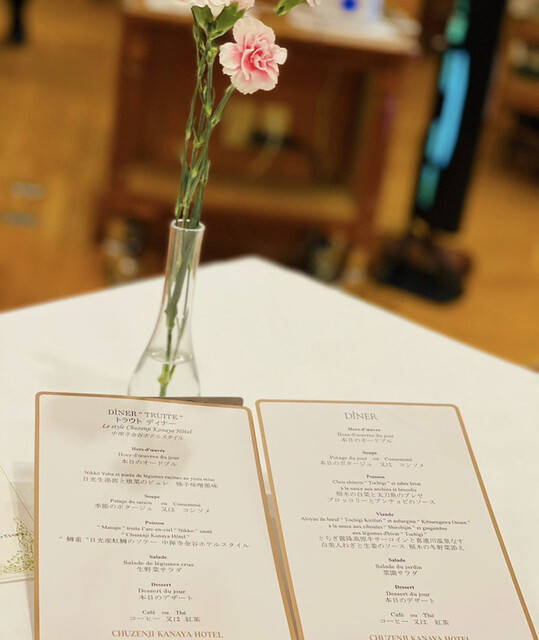 DÎNER " TRUITE "
トラウト ディナー
Le style Chuzenji Kanaya Hôtel
中禅寺金谷ホテルスタイル
Hors-d'œuvre
Hors-d'œuvre du jour
本日のオードブル
Nikko Yuba et purée de légumes racines au yuzu miso
日光生湯波と根菜のピュレ 柚子味噌風味
Soupe
Potage du saison ou Consommé
季節のポタージュ 又は コンソメ
Poisson
" Masuju " truite l'arc-en-ciel " Nikko " sauté
" Chuzenji Kanaya Hôtel "
" 鱒重 " 日光産虹鱒のソテー 中禅寺金谷ホテルスタイル
Salade
Salade de légumes crus
生野菜サラダ
Dessert
Dessert du jour
本日のデザート
Café ou Thé
コーヒー 又は 紅茶
CHUZENJI KANAYA HOTEL
DÎNER
Hors-d'œuvre
Hors-d'œuvre du jour
本日のオードブル
Soupe
Potage du jour ou Consommé
本日のポタージュ 又は コンソメ
Poisson
Chou chinois " Tochigi " et sabre frisé
à la sauce aux anchois et brocolis
栃木の白菜と太刀魚のブレゼ
ブロッコリーとアンチョビのソース
Viande
à la sauce aux ciboules " Shirobijin " et gingembre
aux légumes d'hiver " Tochigi "
白美人ねぎと生姜のソース 栃木の冬野菜添え
Salade
Salade du jardin
菜園サラダ
Dessert
Dessert du jour
本日のデザート
Café ou Thé
コーヒー 又は 紅茶
CHUZENJI KANAYA HOTEL